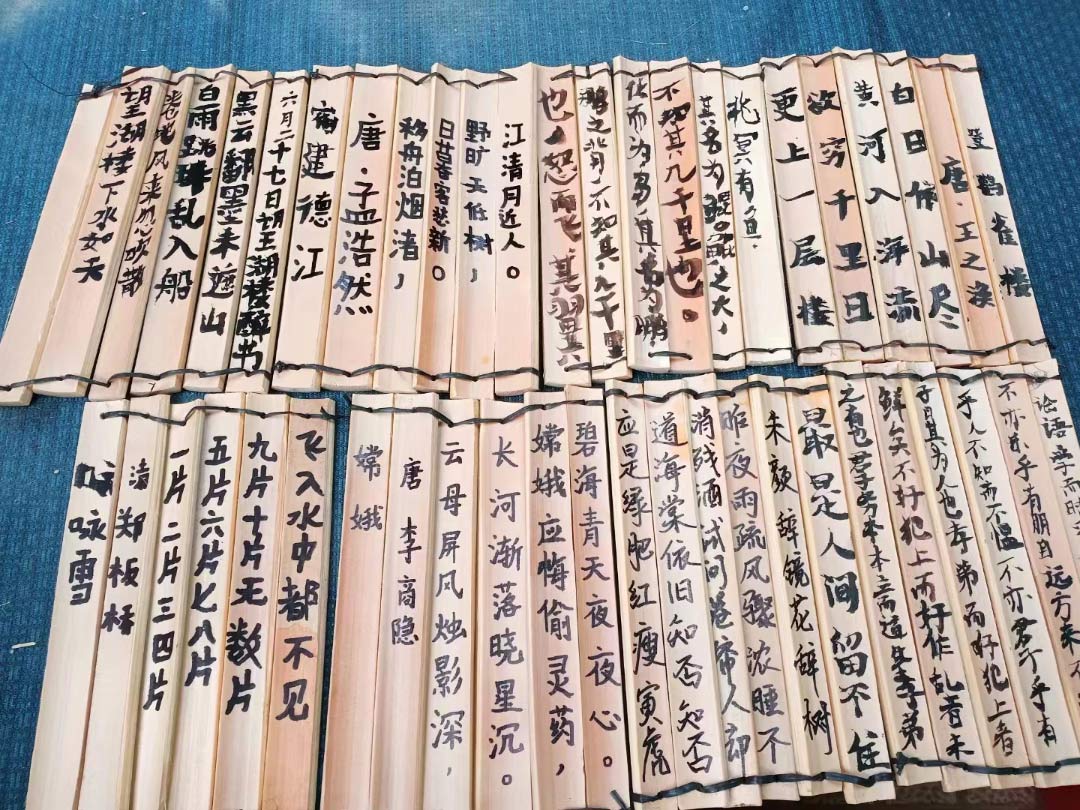 登鹳雀楼
唐·王之涣
白日依山尽
黄河入海流
欲穷千里目
更上一层楼
北冥有鱼,
其名为鲲。鲲之大,
不知其几千里也。
化而为鸟,其名为鹏
鹏之背,不知其几千里
也,怒而飞,其翼
宿建德江
唐·孟浩然
移舟泊烟渚,
日暮客愁新。
野旷天低树,
江清月近人。
六月二十七日望湖楼醉书
黑云翻墨未遮山
白雨跳珠乱入船
卷地风来忽吹散
望湖楼下水如天
论语学而时
不亦乐乎有朋自远方来不
乎人不知而不愠不亦君子乎有
子曰其为人也孝弟而好犯上者
鲜矣不好犯上而好作乱者未
之有也君子务本本立而道生孝弟
最是人间留不住
朱颜辞镜花辞树
昨夜雨疏风骤浓睡不
消残酒试问卷帘人却
道海棠依旧知否知否
应是绿肥红瘦寅虎
嫦娥
唐 李商隐
云母屏风烛影深,
长河渐落晓星沉。
嫦娥应悔偷灵药,
碧海青天夜夜心。
咏雪
清 郑板桥
一片二片三四片
五片六片七八片
九片十片无数片
飞入水中都不见